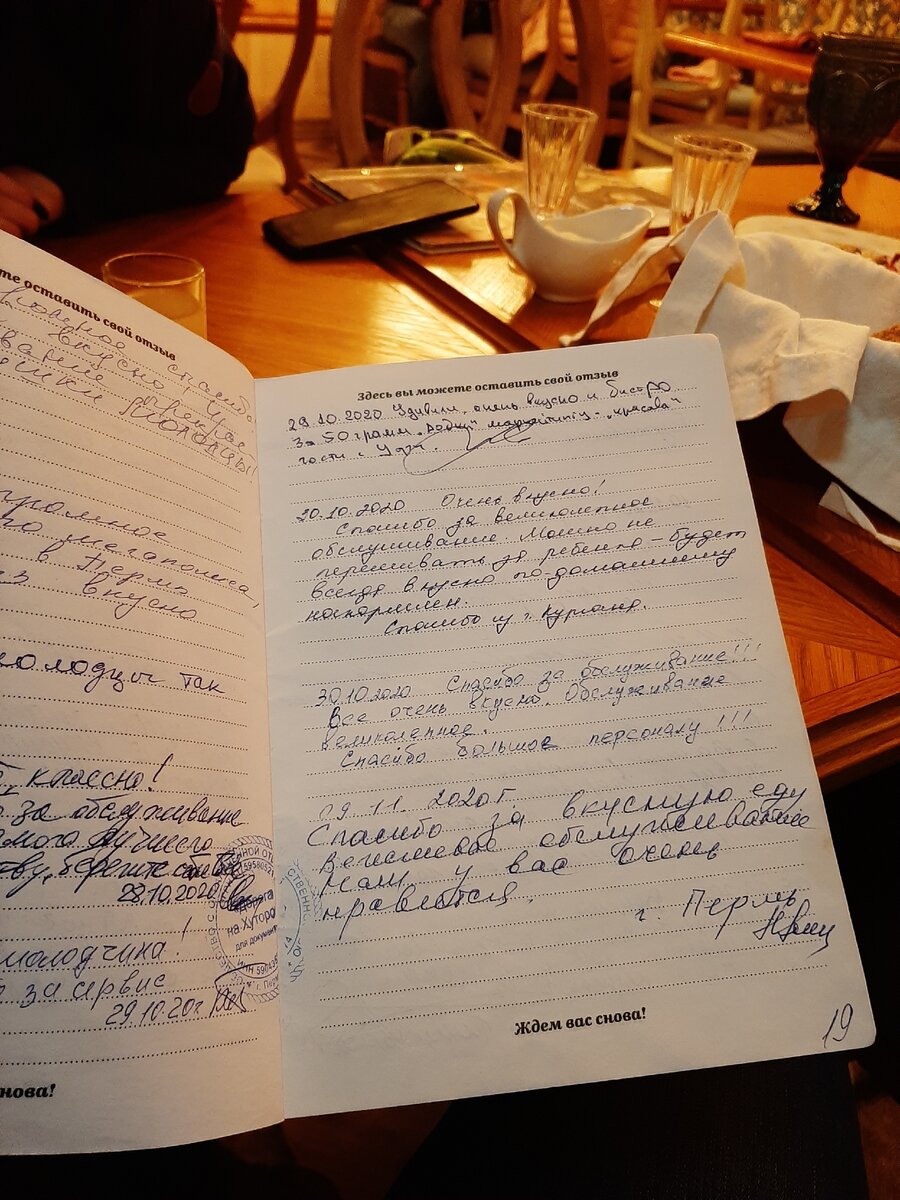 те оставить свой отзыв
вкусно,
громное
мегаполиса,
в Пермь
вкусно
молодцы так
классно!
за обслуживание
28.10.2020
молодчина!
за сервис
29.10.20г.
нова!
на Хуторо
для докумен
Здесь вы можете оставить свой отзыв
29.10.2020 Удивили, очень вкусно и быстро
За 50 грамм
гости с
20.10.2020 Очень вкусно!
Спасибо за великолепное
обслуживание. Можно не
переживать за ребенка – будет
всегда вкусно по-домашнему
накормлен.
Спасибо из г. Кургана.
30.10.2020 Спасибо за обслуживание!!!
Все очень вкусно. Обслуживание
великолепное.
Спасибо большое персоналу!!!
09.11.2020г.
Спасибо за вкусную еду
Вежливое обслуживание
Нам у вас очень
нравится.
г. Пермь
Ждем вас снова!
19